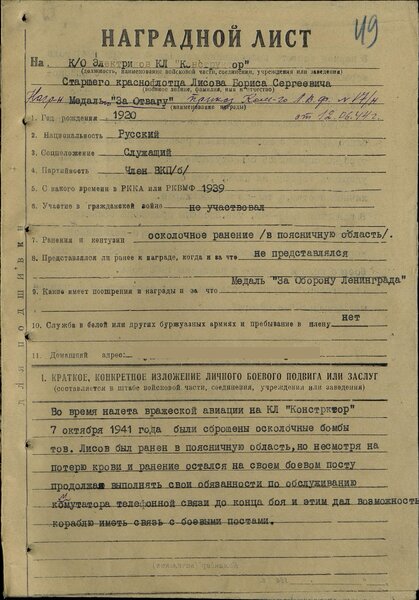 49
НАГРАДНОЙ ЛИСТ
На К/О Электриков КЛ "Конструктор"
(должность, наименование войсковой части, соединения, учреждения или заведения)
Старшего краснофлотца Лисова Бориса Сергеевича
(военное звание, фамилия, имя и отчество)
Медаль "За Отвагу" приказ Ком-го ЛВФ. № 17/н
(наименование награды)
от 12.06.44 г.
1. Год рождения 1920
2. Национальность Русский
3. Соцположение Служащий
4. Партийность Член ВКП/б/
5. С какого времени в РККА или РКВМФ 1939
6. Участие в гражданской войне не участвовал
7. Ранения и контузии осколочное ранение /в поясничную область/.
8. Представлялся ли ранее к награде, когда и за что не представлялся
Медаль "За Оборону Ленинграда"
9. Какие имеет поощрения и награды и за что
10. Служба в белой или других буржуазных армиях и пребывание в плену нет
11. Домашний адрес:
1. КРАТКОЕ, КОНКРЕТНОЕ ИЗЛОЖЕНИЕ ЛИЧНОГО БОЕВОГО ПОДВИГА ИЛИ ЗАСЛУГ
(составляется в штабе войсковой части, соединения, учреждения или заведения)
Во время налета вражеской авиации на КЛ "Констрктор"
7 октября 1941 года были сброшены осколочные бомбы
тов. Лисов был ранен в поясничную область, но несмотря на
потерю крови и ранение остался на своем боевом посту
продолжая выполнять свои обязанности по обслуживанию
комутатора телефонной связи до конца боя и этим дал возможность
кораблю иметь связь с боевыми постами.
ДЛЯ ПОДШИВКИ